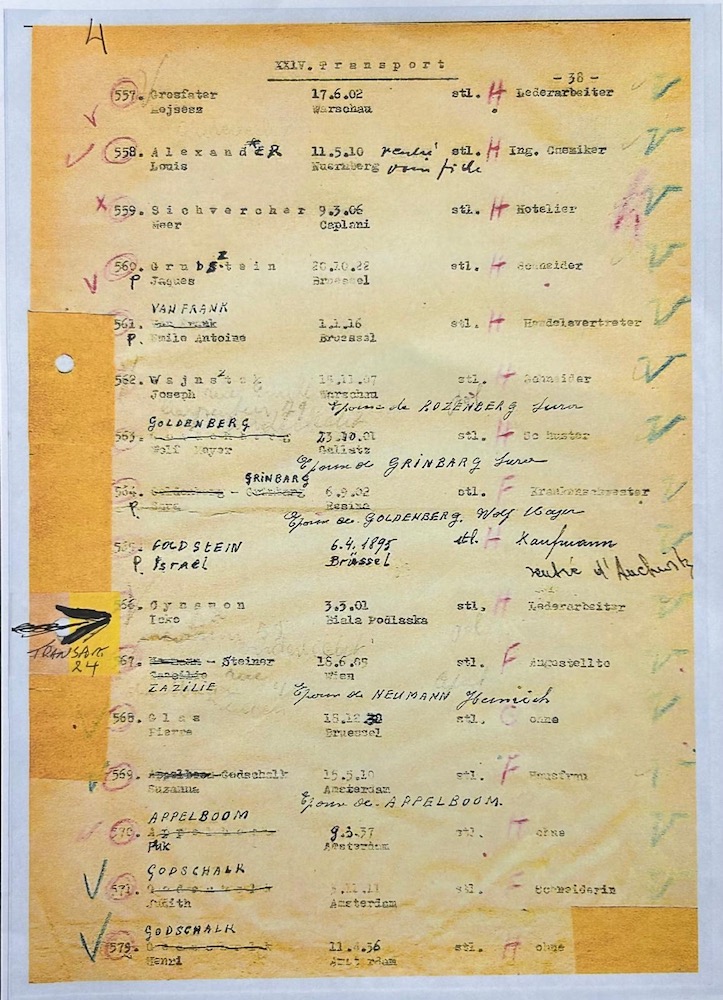 4
XXIV. Transport
- 38 -
557. Grosfater 17.6.02 stl. H Lederarbeiter
Mojsesz Warschau
558. Alexander ER 11.5.10 rentré stl. H Ing. Chemiker
Louis Nuernberg vom fiche
559. Sichvercher 9.3.06 stl. H Hotelier
Meer Caplani
560. Grubsztein 20.10.22 stl. H Schneider
P Jaques Bruessel
VAN FRANK
561. 1.1.16 stl. H Handelsvertreter
P. Emile Antoine Bruessel
562. Wajnsztok 15.11.07 stl. H Schneider
Joseph Warschau
Epoux de ROZENBERG Sura
GOLDENBERG
563. 23.10.01 stl. H Schuster
Wolf Mayer Galiatz
Epoux de GRINBARG Sura
GRINBARG
564. Goldenberg - 6.9.02 stl. F Krankenschwester
P. Sura Resina
Epouse de GOLDENBERG, Wolf Mayer
565. GOLDSTEIN 6.4.1895 stl. H Kaufmann
P. Israel Brüssel
rentré d'Auchwitz
566. Cynamon 3.3.01 stl. H Lederarbeiter
Icko Biala Podlaska
TRANSP.
24
567. Neumann - Steiner 18.6.99 stl. F Angestellte
Caecilie Wien
ZAZILIE
Epouse de NEUMANN Heinrich
568. Glas 18.12.30 stl. ohne
Pierre Bruessel
569. Appelboom-Godschalk 15.5.10 stl. F Hausfrau
Suzanna Amsterdam
Epouse de APPELBOOM.
APPELBOOM
570. Appelboom 9.3.37 stl. H ohne
Amsterdam
GODSCHALK
571. Godschalk stl. F Schneiderin
Judith Amsterdam
GODSCHALK
572. Godschalk 11.4.36 stl. H ohne
Henri Amsterdam